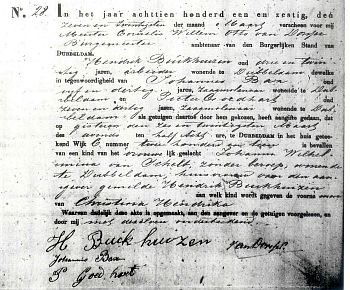 N.° 28.
In het jaar achttien honderd een en zestig, den
zeven en twintigsten der maand Maart verscheen voor mij
Meester Cornelis Willem Otto van Dorsser
Burgemeester ambtenaar van den Burgerlijken Stand van
DUBBELDAM.
Hendrik Buckhuizen oud drie en twin-
tig jaren, arbeider wonende te Dubbeldam dewelke
in tegenwoordigheid van Johannes Bax oud
vijf en dertig jaren, wonende te Dub-
beldam, en Pieter Goedhart oud
zeven en dertig jaren, wonende te Dub-
beldam als getuigen daartoe door hem gekozen, heeft aangifte gedaan, dat
op gisteren den zes en twintigsten Maart
des avonds ten half acht ure, te DUBBELDAM in het huis geteek-
end Wijk C nommer twee honderd en is bevallen
van een kind van het lijk geslacht Johanna Wilhel-
mina van zonder beroep wonende
te Dubbeldam, huisvrouw van den aan-
gever gemelde Hendrik Buckhuizen
aan welk kind wordt gegeven de voorna men
van Christina Hendrika
Waarvan dadelijk deze akte is opgemaakt, aan den aangever en de getuigen voorgelezen, en
door mij met dezelven onderteekend.
H Buckhuizen van Dorsser
Johannes Bax
P Goedhart